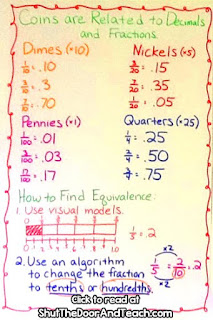 Coins are Related to Decimals
and Fractions.
Dimes (×10)
1/10 = .10
3/10 = .3
7/10 = .70
Nickels (×5)
3/20 = .15
7/20 = .35
1/20 = .05
Pennies (×1)
1/100 = .01
3/100 = .03
17/100 = .17
Quarters (×25)
1/4 = .25
2/4 = .50
3/4 = .75
How to Find Equivalence:
1. Use visual models.
1/5 = 2
2. Use an algorithm
to change the fraction
to tenths or hundredths.
×2
1/5 = 2/10 = .2
×2
Click to read at
ShutTheDoorAndTeach.com